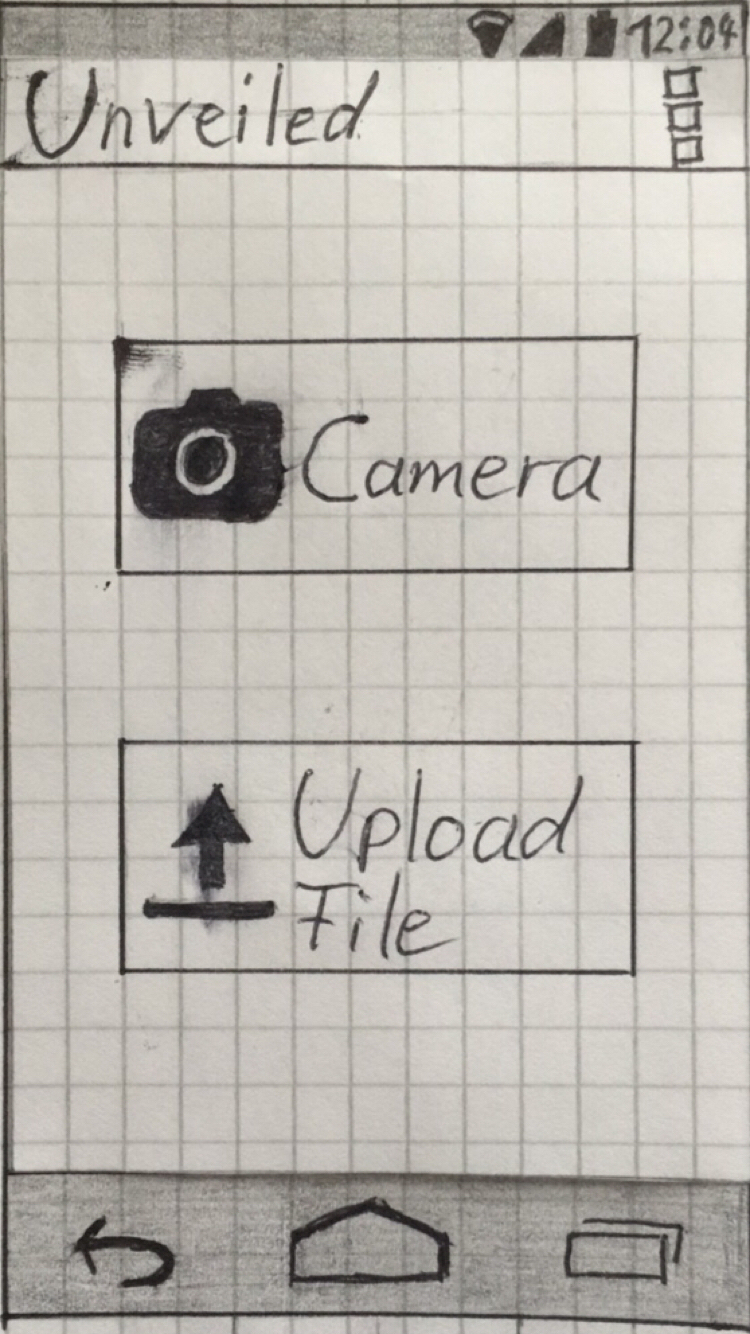 12:04
Unveiled
Camera
Upload
File